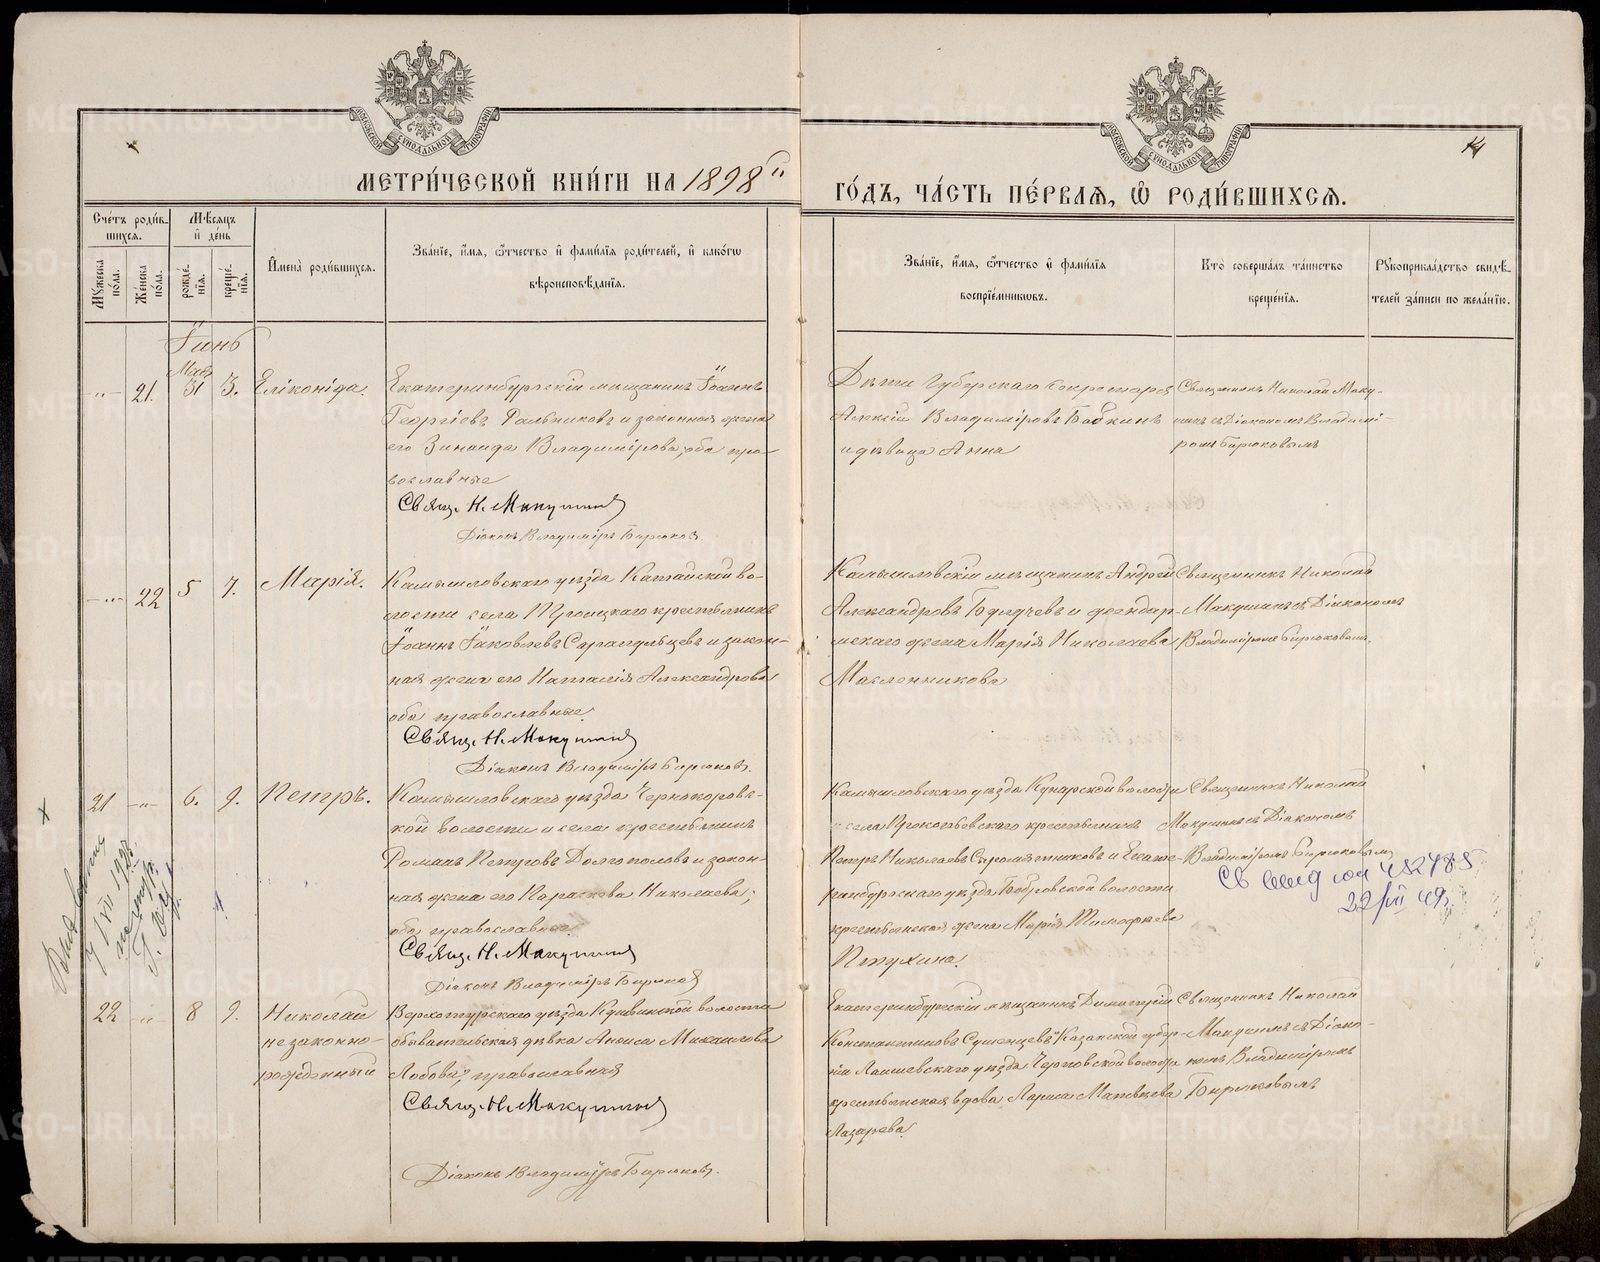 МЕТРИ́ЧЕСКОЙ КНИ́ГИ НА 1898й
ГО́ДЪ, ЧА́СТЬ ПЕ́РВАѦ, Ѡ҆ РОДИ́ВШИХСѦ.
14
Сче́тъ роди́в-
шихсѧ.
Мꙋ́жеска по́ла.
Же́нска по́ла.
Мѣ́сяцъ
и҆ де́нь
рожде́нїѧ.
креще́нїѧ.
И҆мена̀ роди́вшихсѧ.
Зва́нїе, и҆́мѧ, ѻ҆́тчество и҆ фами́лїѧ роди́телей, и҆ како́гѡ
вѣроисповѣ́данїѧ.
Зва́нїе, и҆́мѧ, ѻ҆́тчество и҆ фами́лїѧ
воспрїе́мникѡвъ.
Кто̀ соверша́лъ та́инство
креще́нїѧ.
Рꙋкоприкла́дство свидѣ́-
телей за́писи по жела́нїю.
Іюнь
Мая
-„- 21. 31 3. Еліконида.
Екатеринбургскій мѣщанинъ Іоаннъ
Георгіевъ Рыльниковъ и законная жена
его Зинаида Владимірова, оба пра-
вославные
Свящ. Н. Макушинъ
Діаконъ Владиміръ Бирюковъ.
Дѣти Губернскаго Секретаря
Алексій Владиміровъ Бабкинъ
и дѣвица Анна
Священникъ Николай Маку-
шинъ съ Діакономъ Владимі-
ромъ Бирюковымъ
-„- 22 5 7. Марія.
Камышловскаго уѣзда Катайской во-
лости села Троицкаго крестьянинъ
Іоаннъ Іаковлевъ Сарапульцевъ и закон-
ная жена его Наталія Александрова
оба православные.
Свящ. Н. Макушинъ
Діаконъ Владиміръ Бирюковъ.
Камышловскій мѣщанинъ Андрей
Александровъ и жандар-
мскаго жена Марія Николаева
Масленникова
Священникъ Николай
Макушинъ съ Діакономъ
Владиміромъ Бирюковымъ.
21 -„- 6. 9. Петръ.
Камышловскаго уѣзда Чернокоровс-
кой волости и села крестьянинъ
Романъ Петровъ Долгополовъ и закон-
ная жена его Параскева Николаева;
оба православные.
Свящ. Н. Макушинъ
Діаконъ Владиміръ Бирюковъ
Камышловскаго уѣзда Кунарской волости
села Прокопьевскаго крестьянинъ
Петръ Николаевъ Сыромятниковъ и Екате-
ринбургскаго уѣзда Бобровской волости
крестьянская жена Марія Тимофеева
Пѣтухина.
Священникъ Николай
Макушинъ съ Діакономъ
Владиміромъ Бирюковымъ
22/VII 49.
22 -„- 8 9. Николай
незаконно-
рожденный
Верхотурскаго уѣзда Кушвинской волости
обывательская дѣвка Аниса Михаилова
Лобова; православная
Свящ. Н. Макушинъ
Діаконъ Владиміръ Бирюковъ.
Екатеринбургскій мѣщанинъ Димитрій
Константиновъ Сушенцевъ и Казанской губер-
ніи Лаишевскаго уѣзда волости
крестьянская вдова Лариса Матвеева
Лазарева.
Священникъ Николай
Макушинъ съ Діако-
номъ Владиміромъ
Бирюковымъ
METRIKI.GASO-URAL.RU